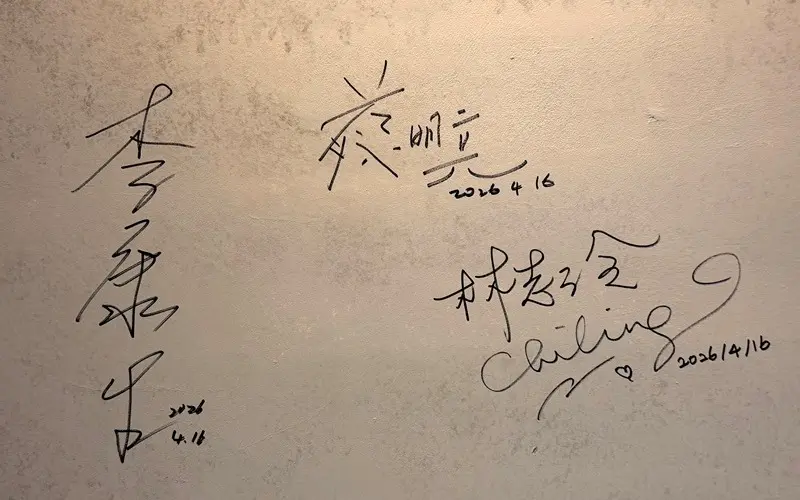 李康生
2026
4.16
蔡明亮
2026 4 16
林志玲
Chiling ♡
2026/4/16